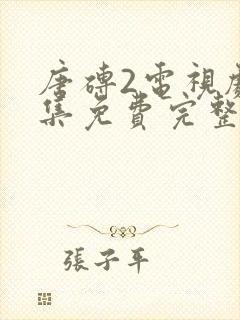 唐磚2電視劇
集免費完整
張子平